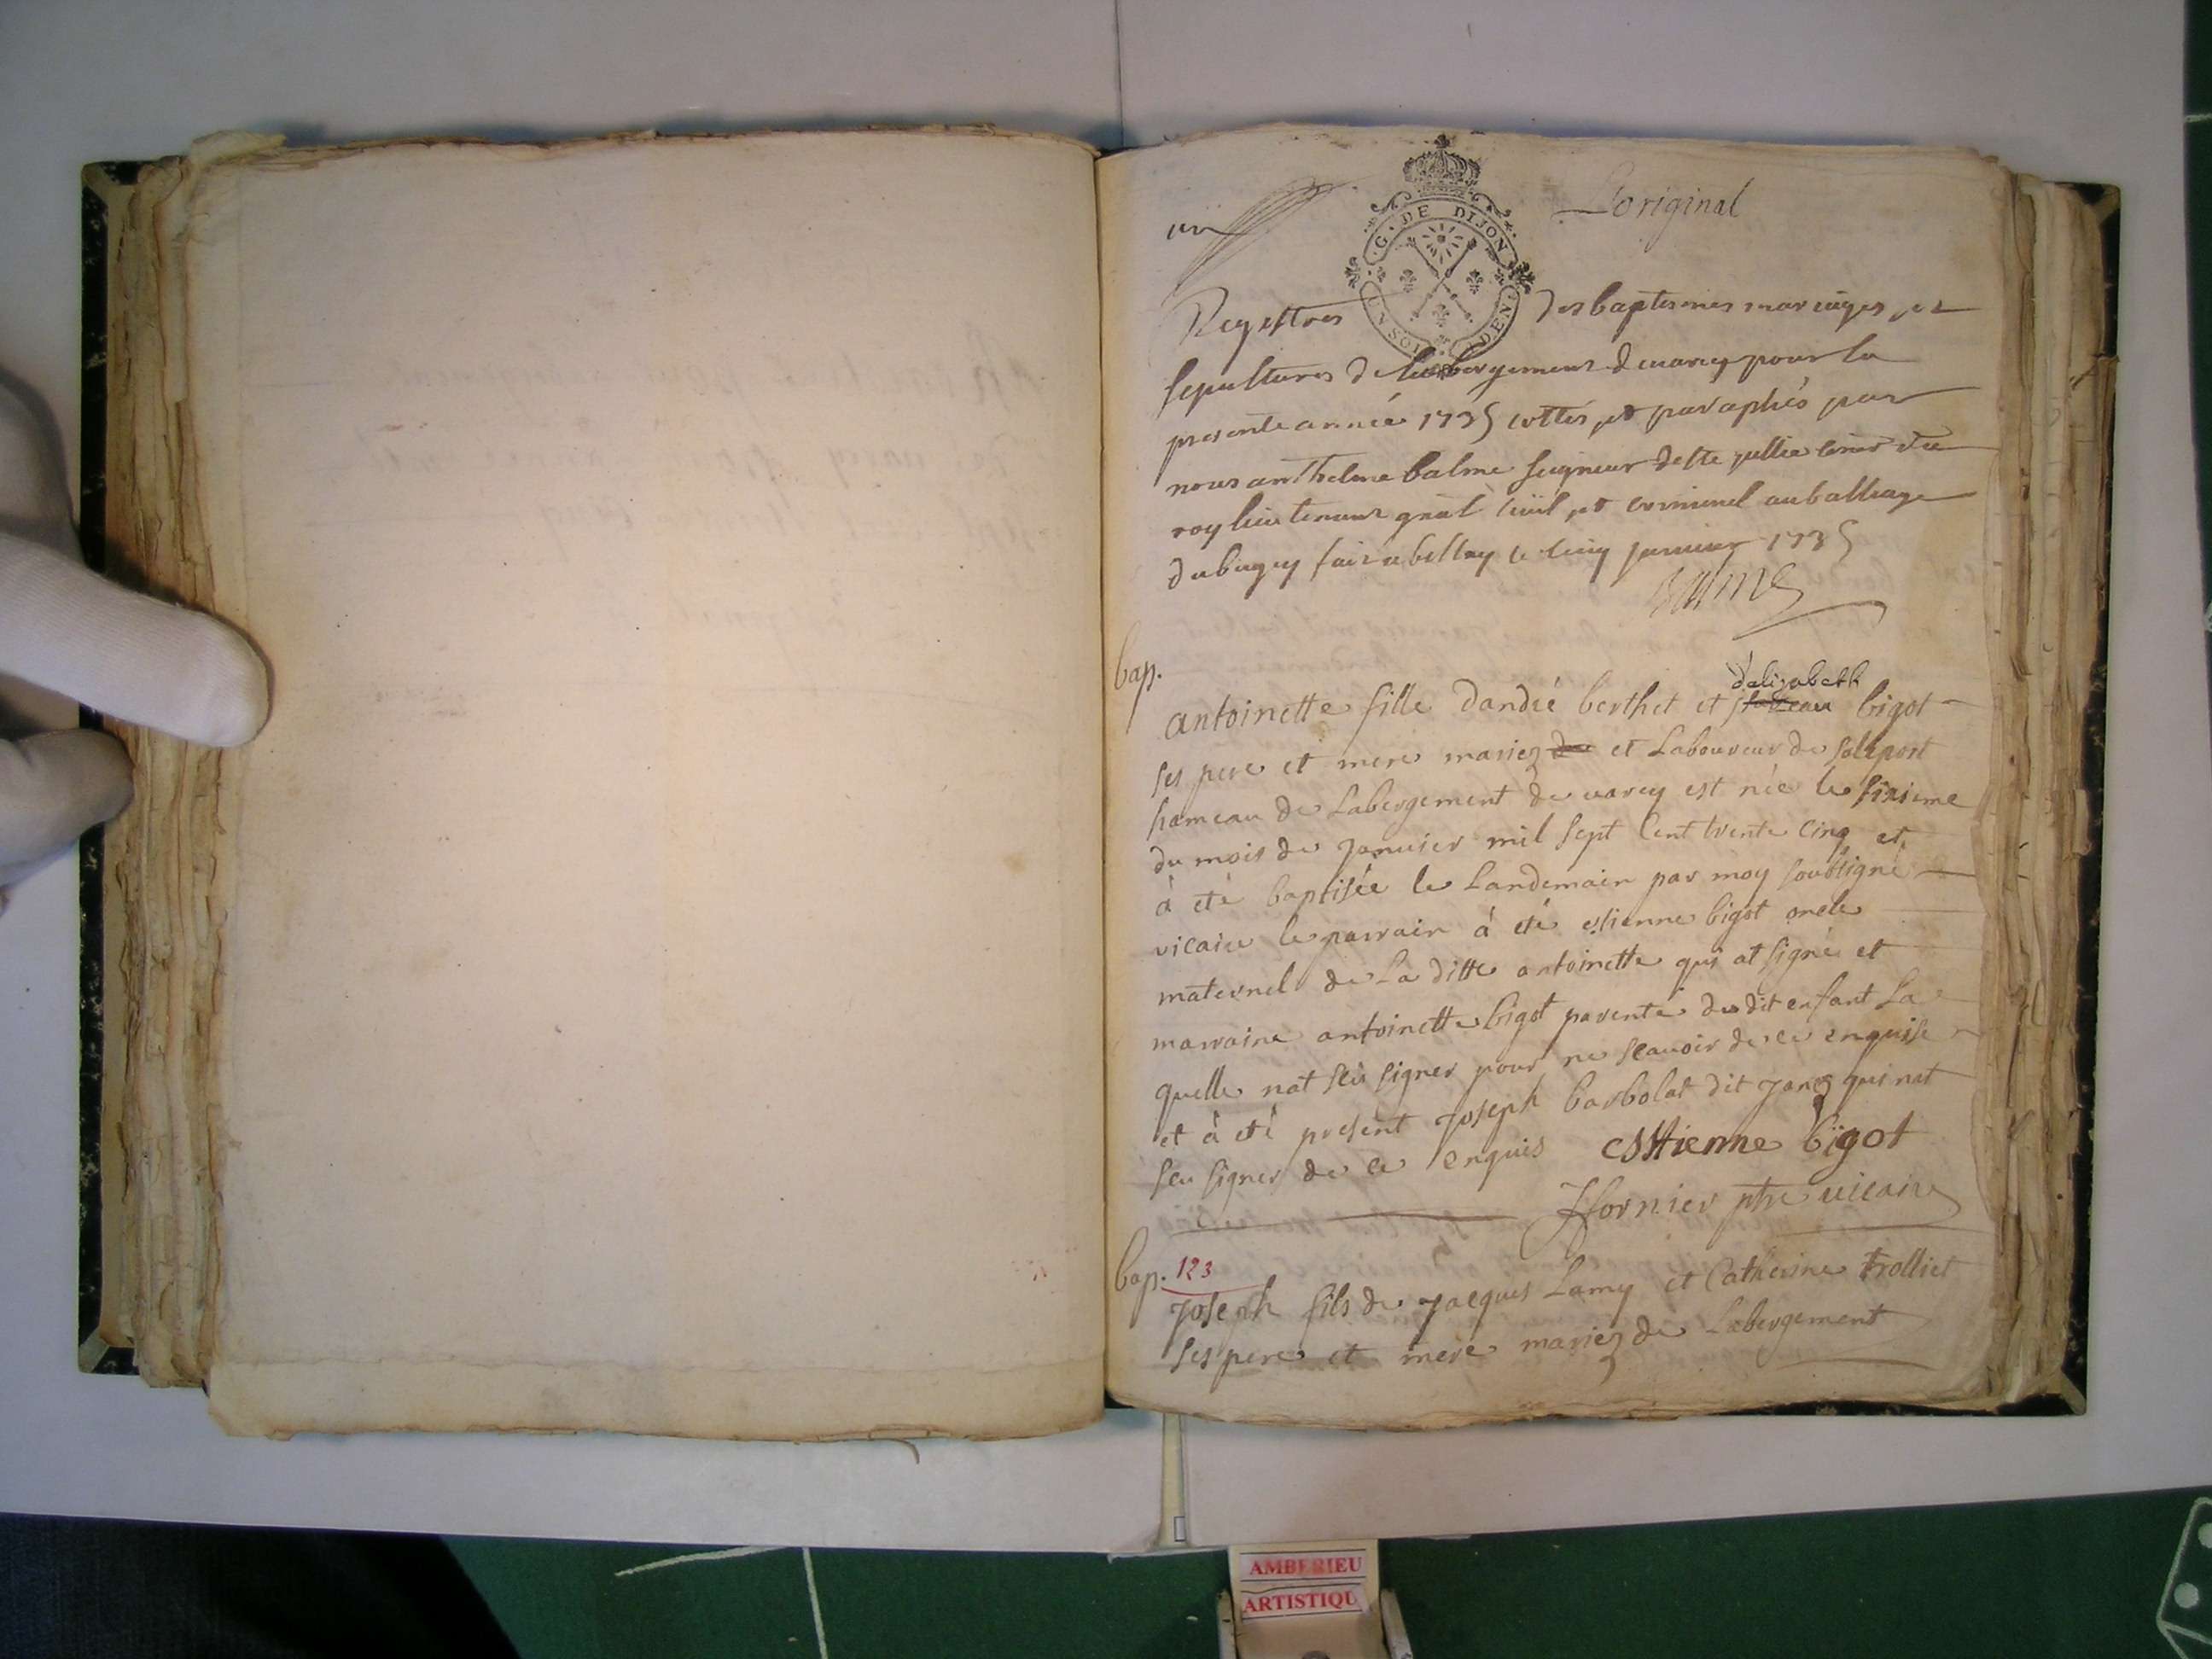 un
L'original
G. DE DIJON
UN SOL
DEN
Regestres des baptesmes mariages, et
sepultures de labergement de varey pour la
presente année 1735 cottés, et paraphés par
nous anthelme balme seigneur de ste jullie coner du
roy lieutenant gnâl civil, et criminel au balliage
du bugey fait a belley le cinq janvier 1735
Balme
bap.
dalizabeth
antoinette fille dandré berthet et bigot
ses pere et mere mariez et Laboureur de Soleport
hameau de Labergement de varey est née le sixieme
du mois de janvier mil sept cent trente cinq et
à eté baptisée le Landemain par moy soubsigné
vicaire le parrain à eté estienne bigot oncle
maternel de La ditte antoinette qui at signé et
marraine antoinette bigot parente du dit enfant La
quelle nat sceu signer pour ne scavoir de ce enquise
et à eté present joseph barbolat dit janez qui nat
sceu signer de ce enquis estienne bigot
ffornier ptre vicaire
bap. 123
joseph fils de jacques Lamy et Catherine trolliet
ses pere et mere mariez de Labergement
AMBERIEU
ARTISTIQU